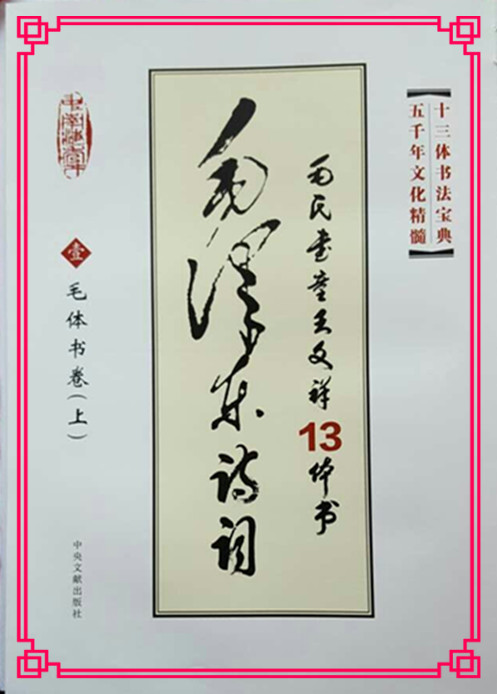 十三体书法宝典
五千年文化精髓
王文祥13体书
毛泽东诗词
壹 毛体书卷(上)
中央文献出版社